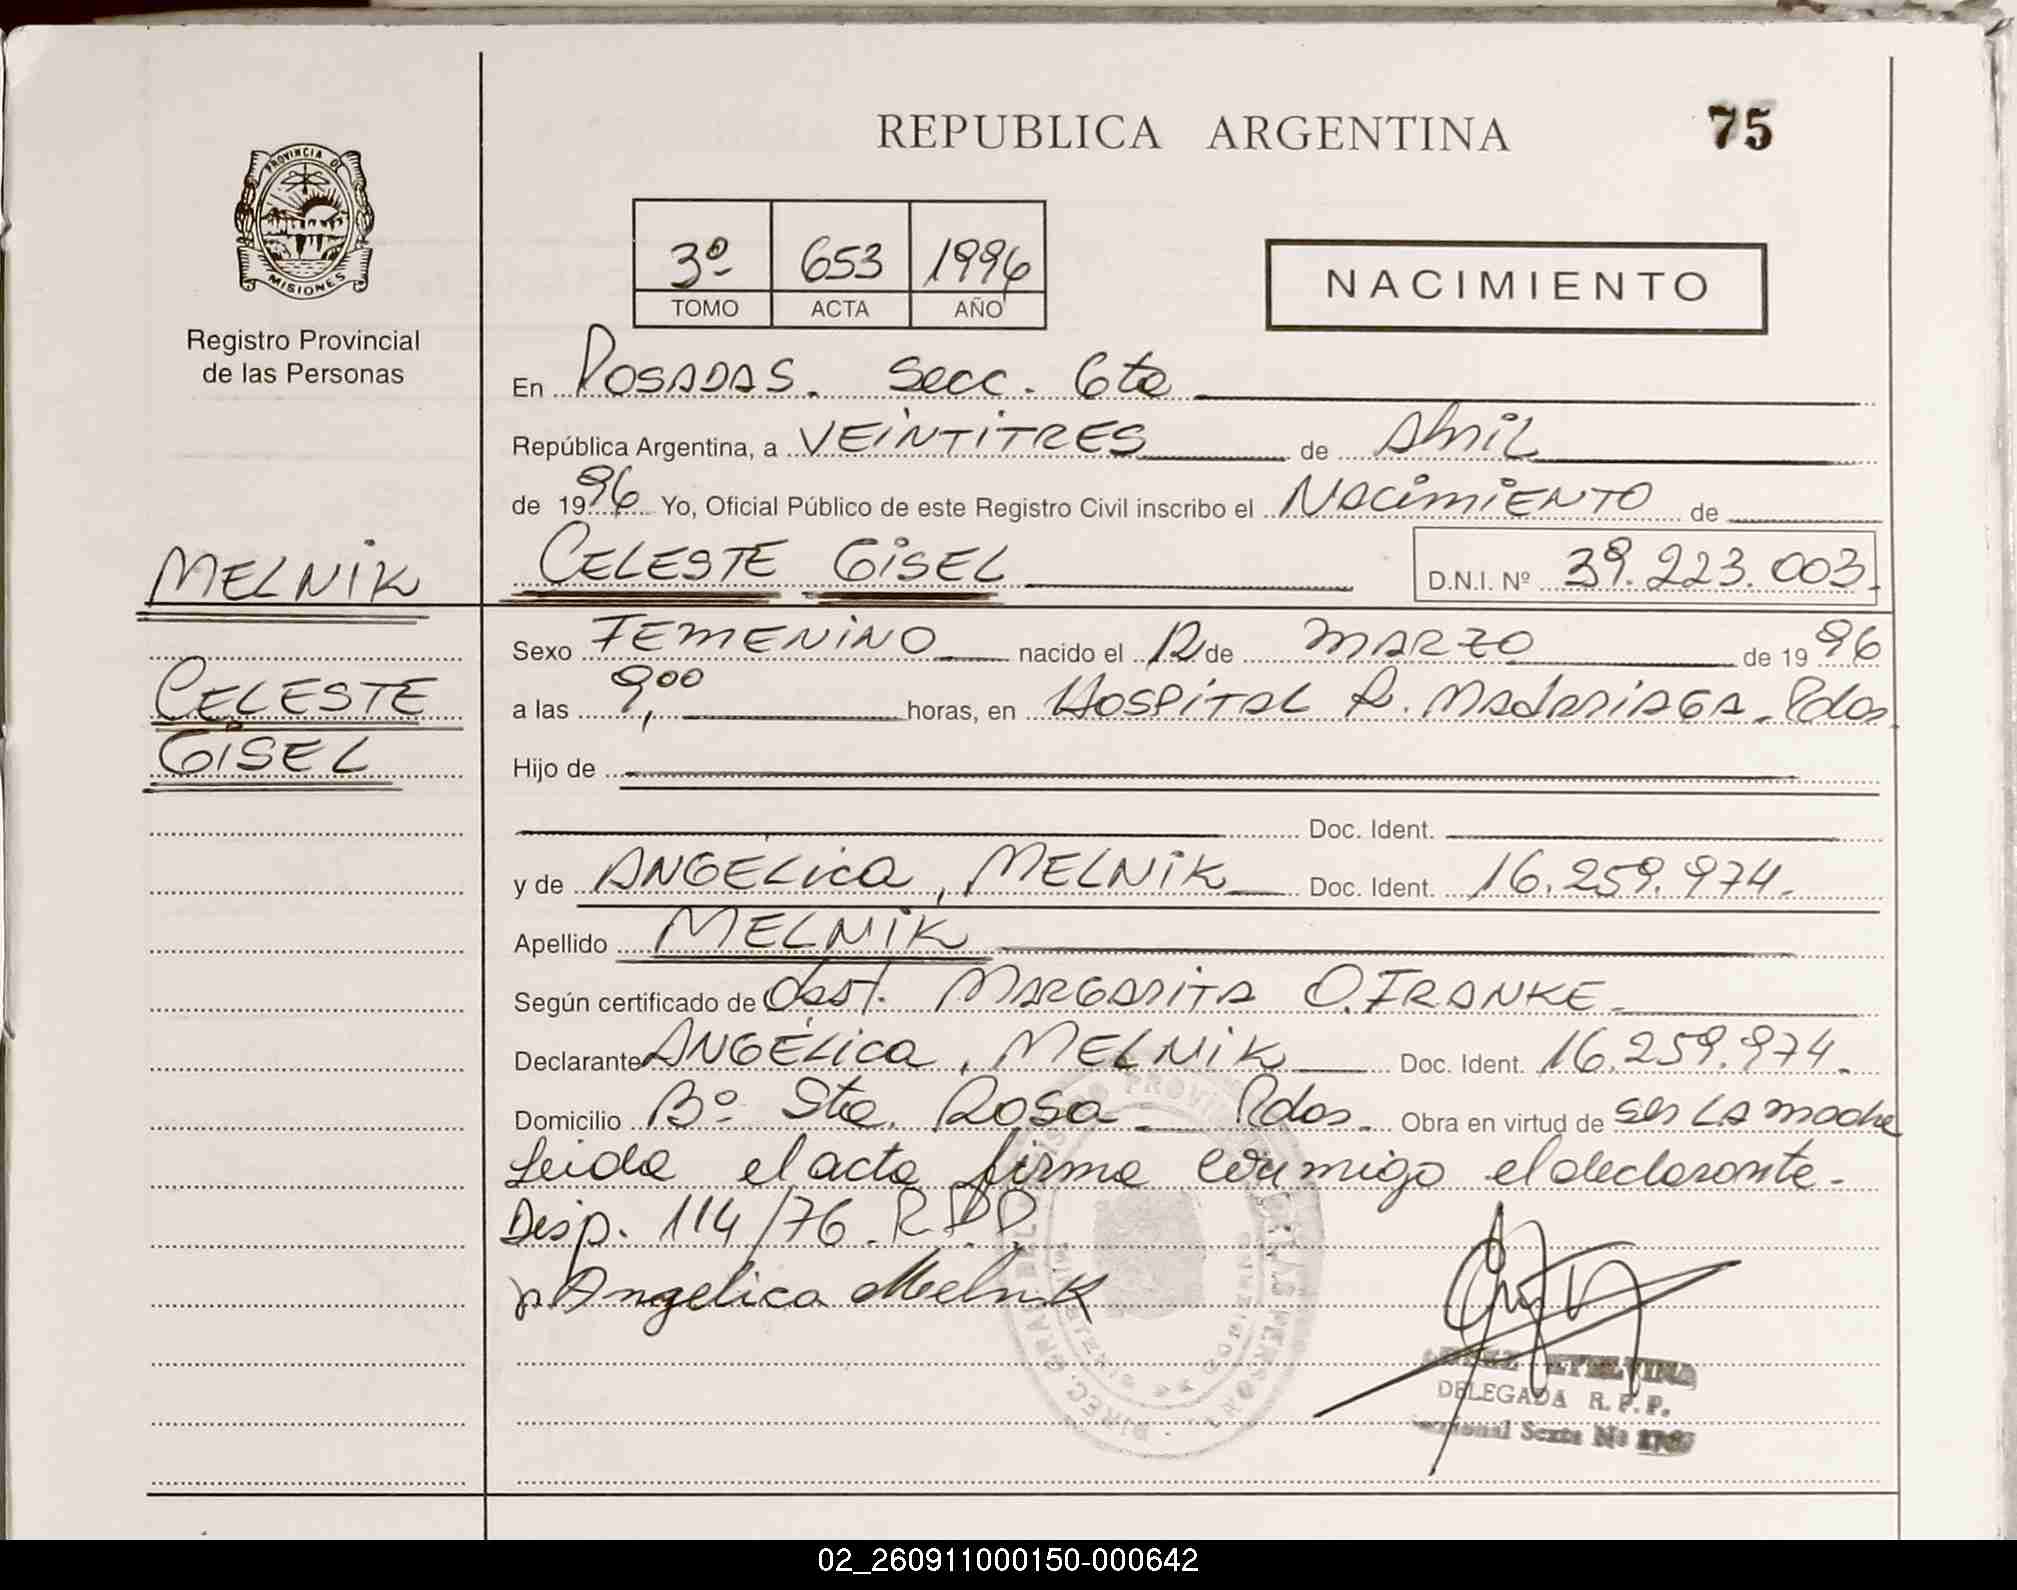 REPUBLICA ARGENTINA
75
PROVINCIA DE
MISIONES
Registro Provincial
de las Personas
3º 653 1996
TOMO ACTA AÑO
NACIMIENTO
En POSADAS. Secc. 6ta
República Argentina, a VEINTITRES de Abril
de 1996 Yo, Oficial Público de este Registro Civil inscribo el NACIMIENTO de
MELNIK
CELESTE GISEL D.N.I. Nº 39.223.003.
CELESTE
GISEL
Sexo FEMENINO nacido el 12 de MARZO de 1996
a las 9,00 horas, en HOSPITAL R. MADARIAGA. Pdas.
Hijo de
Doc. Ident.
y de ANGÉLICA, MELNIK Doc. Ident. 16.259.974.
Apellido MELNIK
Según certificado de Obst. MARGARITA O. FRANKE.
Declarante ANGÉLICA, MELNIK Doc. Ident. 16.259.974.
Domicilio Bº Sta. Rosa Pdas. Obra en virtud de ser LA madre
Leida el acta firma conmigo el declarante.
Disp. 114/76. R.P.P.
Angelica Melnik
ETELVINA
DELEGADA R.P.P.
Sexta Nº
02_260911000150-000642